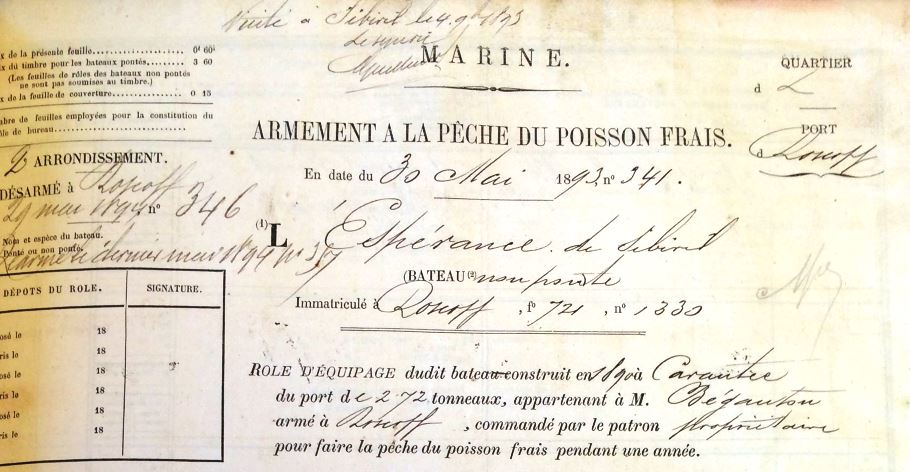 Visité à Sibiril le 4 9bre 1893
MARINE.
x de la présente feuille 0f 60c
x du timbre pour les bateaux pontés 3 60
(Les feuilles de rôles des bateaux non pontés
ne sont pas soumises au timbre.)
x de la feuille de couverture 0 15
bre de feuilles employées pour la constitution du
le de bureau
QUARTIER
d
PORT
à Roscoff
ARMEMENT A LA PÊCHE DU POISSON FRAIS.
En date du 30 Mai 1893 no 341.
2e ARRONDISSEMENT.
DÉSARMÉ à Roscoff
29 mai 1894, no 346
Nom et espèce du bateau.
Ponté ou non ponté.
Réarmé le dernier mai 1894 no 367
(1) L'Espérance de Sibiril
(BATEAU (2) non ponté
Immatriculé à Roscoff, fo 721, no 1330
DÉPOTS DU ROLE. SIGNATURE.
osé le 18
ris le 18
osé le 18
ris le 18
osé le 18
ris le 18
ROLE D'ÉQUIPAGE dudit bateau construit en 1890 à Carantec
du port de 2 72 tonneaux, appartenant à M. Bégantou
armé à Roscoff, commandé par le patron propriétaire
pour faire la pêche du poisson frais pendant une année.